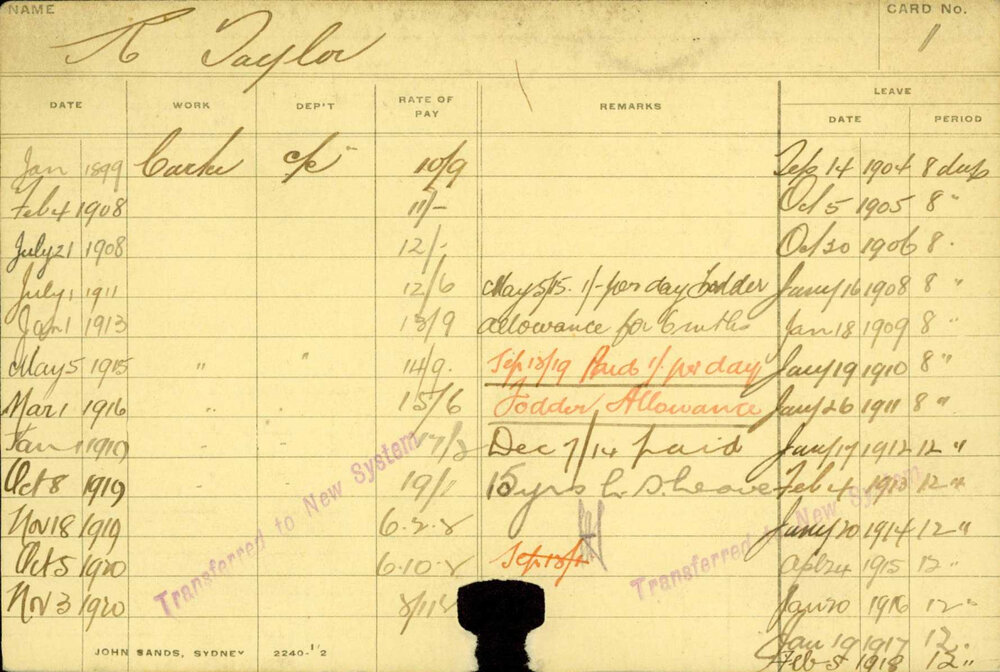 NAME R Taylor CARD No. 1
DATE WORK DEP'T RATE OF PAY REMARKS LEAVE
DATE PERIOD
Jan 1899 Carter c/c " 10/9 Sep 14 1904 8 days
Feb 4 1908 11/- Oct 5 1905 8 "
July 21 1908 12/- Oct 30 1906 8 "
July 1 1911 12/6 May 5/15. 1/- per day Fodder Jany 16 1908 8 "
Jan 1 1913 13/9 allowance for 6 mths Jan 18 1909 8 "
May 5 1915 " " 14/9. Sep 18/19 Paid 1/- per day Jany 19 1910 8 "
Mar 1 1916 " " 15/6 Fodder Allowance Jany 26 1911 8 "
Jan 1 1919 " " 17/3 Dec 7/14 paid Jany 17 1912 12 "
Oct 8 1919 " 19/1 15 yrs L. S. Leave Feb 4 1913 12 "
Nov 18 1919 6.2.8 Jany 20 1914 12 "
Oct 5 1920 6.10.8 Sep 18/ Apl 24 1915 12 "
Nov 3 1920 Jan 20 1916 12 "
Jan 19 1917 12 "
Feb 5 1918 12 "
Transferred to New System
Transferred to New System
JOHN SANDS, SYDNEY 2240-1/2